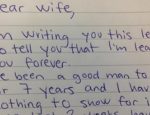 ear wife,
m writing you this le
o tell you that I'm lea
ou forever.
've been a good man to
r 7 years and I hav
othing to show for i